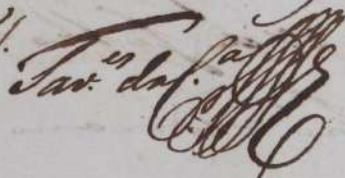 Tav.es da C.a